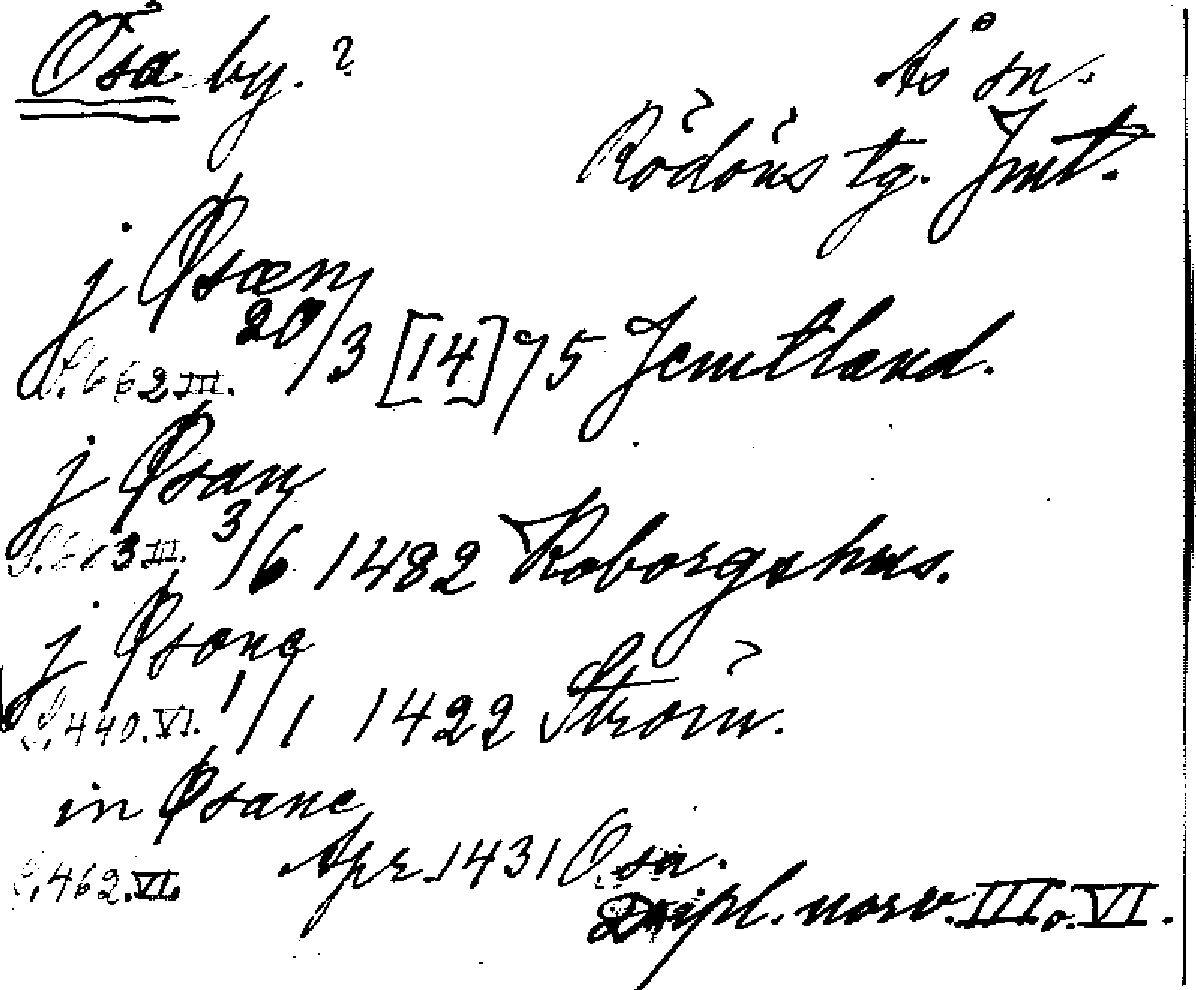 Ösa by. ?
Ås sn.
Rödöns tg. Jmt.
j Øsæm
S. 662 III. 20/3 [14]75 Jemtland.
j Øsan
S. 683 III. 3/6 1482 Roborgshus.
j Øsone
S. 440. VI. 1/1 1422 Ström.
in Øsane
S. 462. VI. Apr. 1431 Osa.
Dipl. norv. III o. VI.